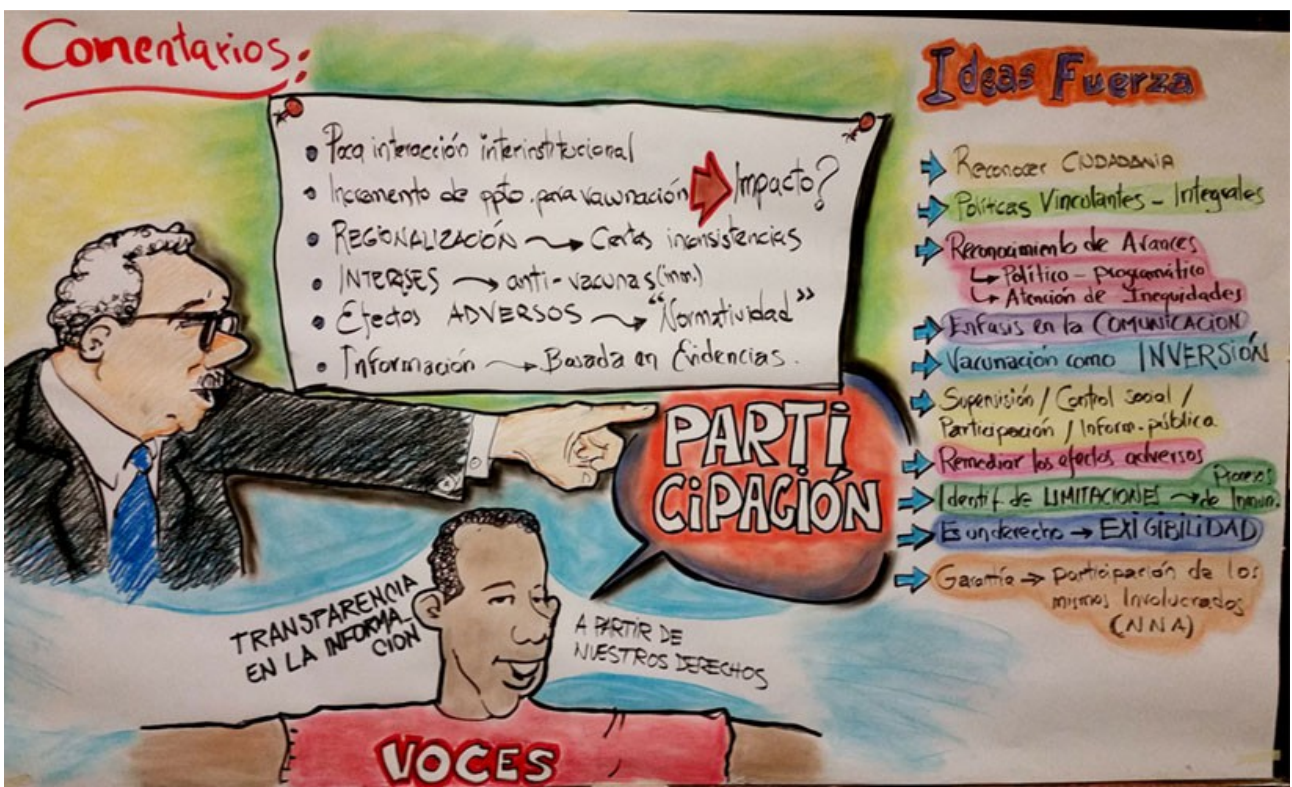 Comentarios:
• Poca interacción interinstitucional
• Incremento de ppto. para vacunación → Impacto?
• REGIONALIZACIÓN → Ciertas inconsistencias
• INTERESES → anti-vacunas (inm.)
• Efectos ADVERSOS → "Normatividad"
• Información → Basada en Evidencias.
PARTI
CIPACIÓN
TRANSPARENCIA
EN LA INFORMA-
CION
A PARTIR DE
NUESTROS DERECHOS
VOCES
Ideas Fuerza
Reconocer CIUDADANIA
Políticas Vinculantes - Integrales
Reconocimiento de Avances
↳ Político - programático
↳ Atención de Inequidades
Enfasis en la COMUNICACION
Vacunación como INVERSIÓN
Supervisión / Control social /
Participación / Inform. pública
Remediar los efectos adversos
Identif. de LIMITACIONES → Procesos
de Inmun.
Es un derecho → EXIGIBILIDAD
Garantía → participación de los
mismos Involucrados
(NNA)